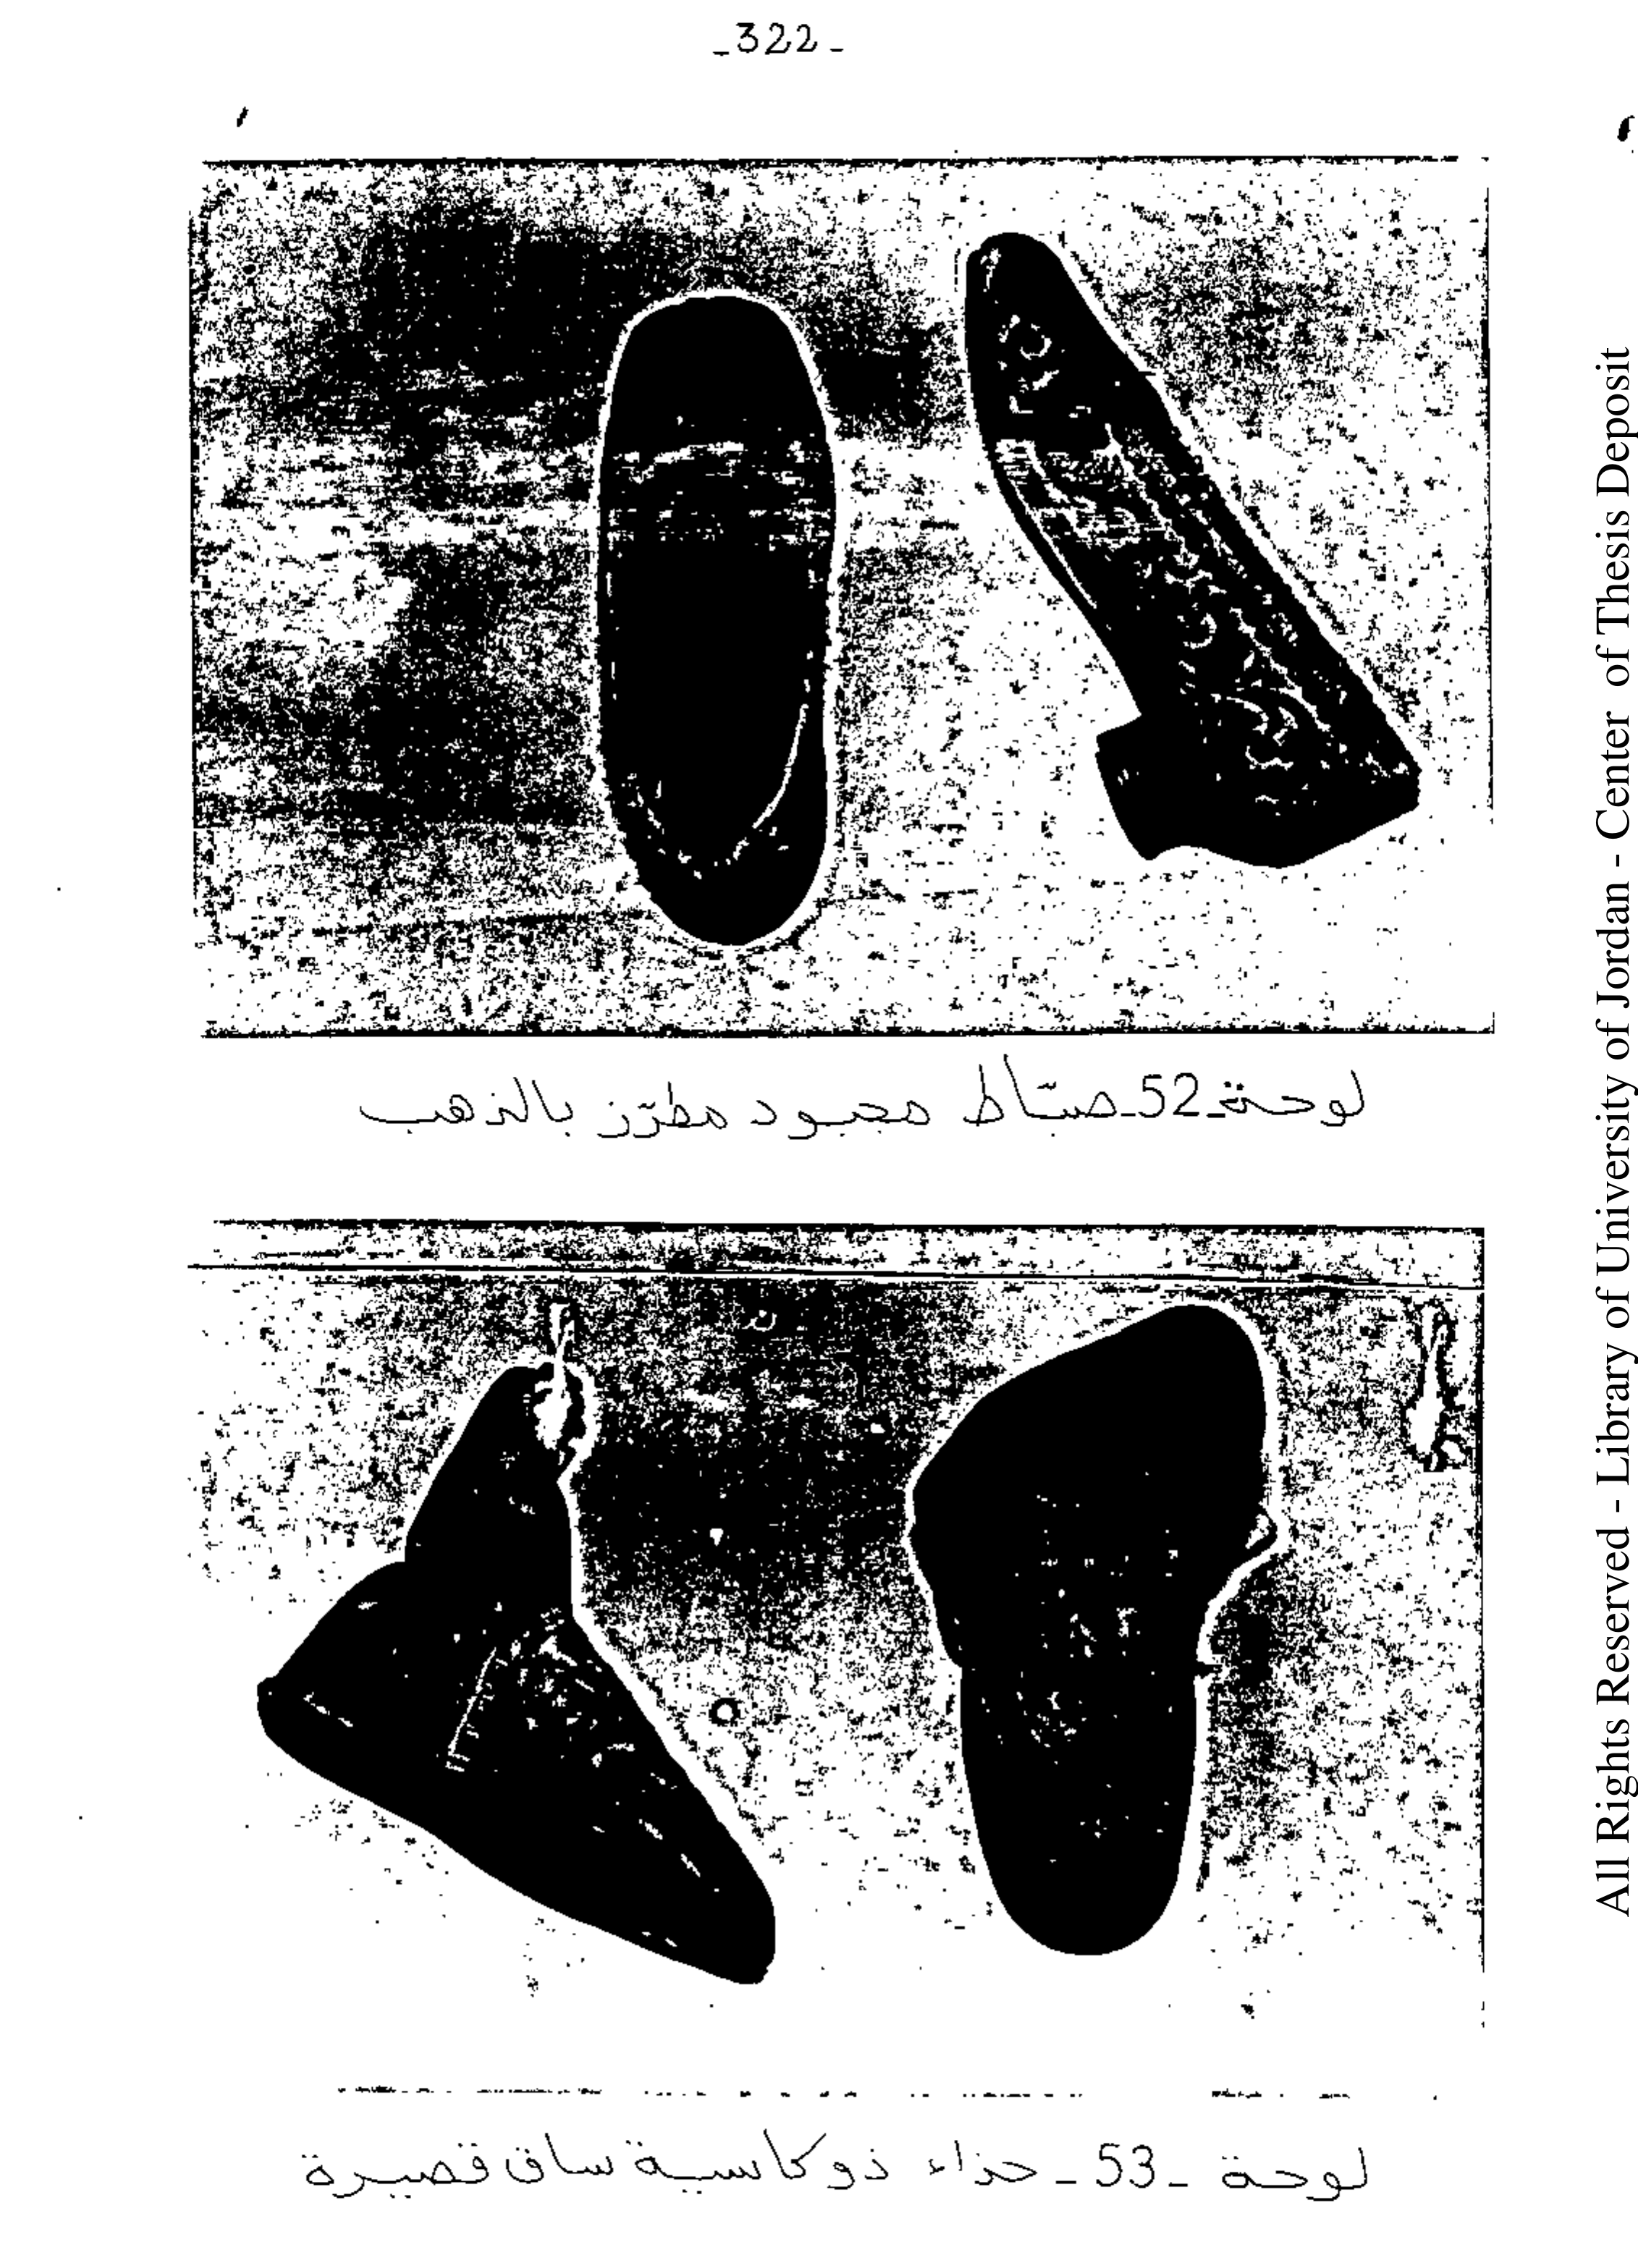 -322-
لوحة-52-صبّاط مجبود مطرّز بالذهب
لوحة -53- حذاء ذو كاسية ساق قصيرة
All Rights Reserved - Library of University of Jordan - Center of Thesis Deposit